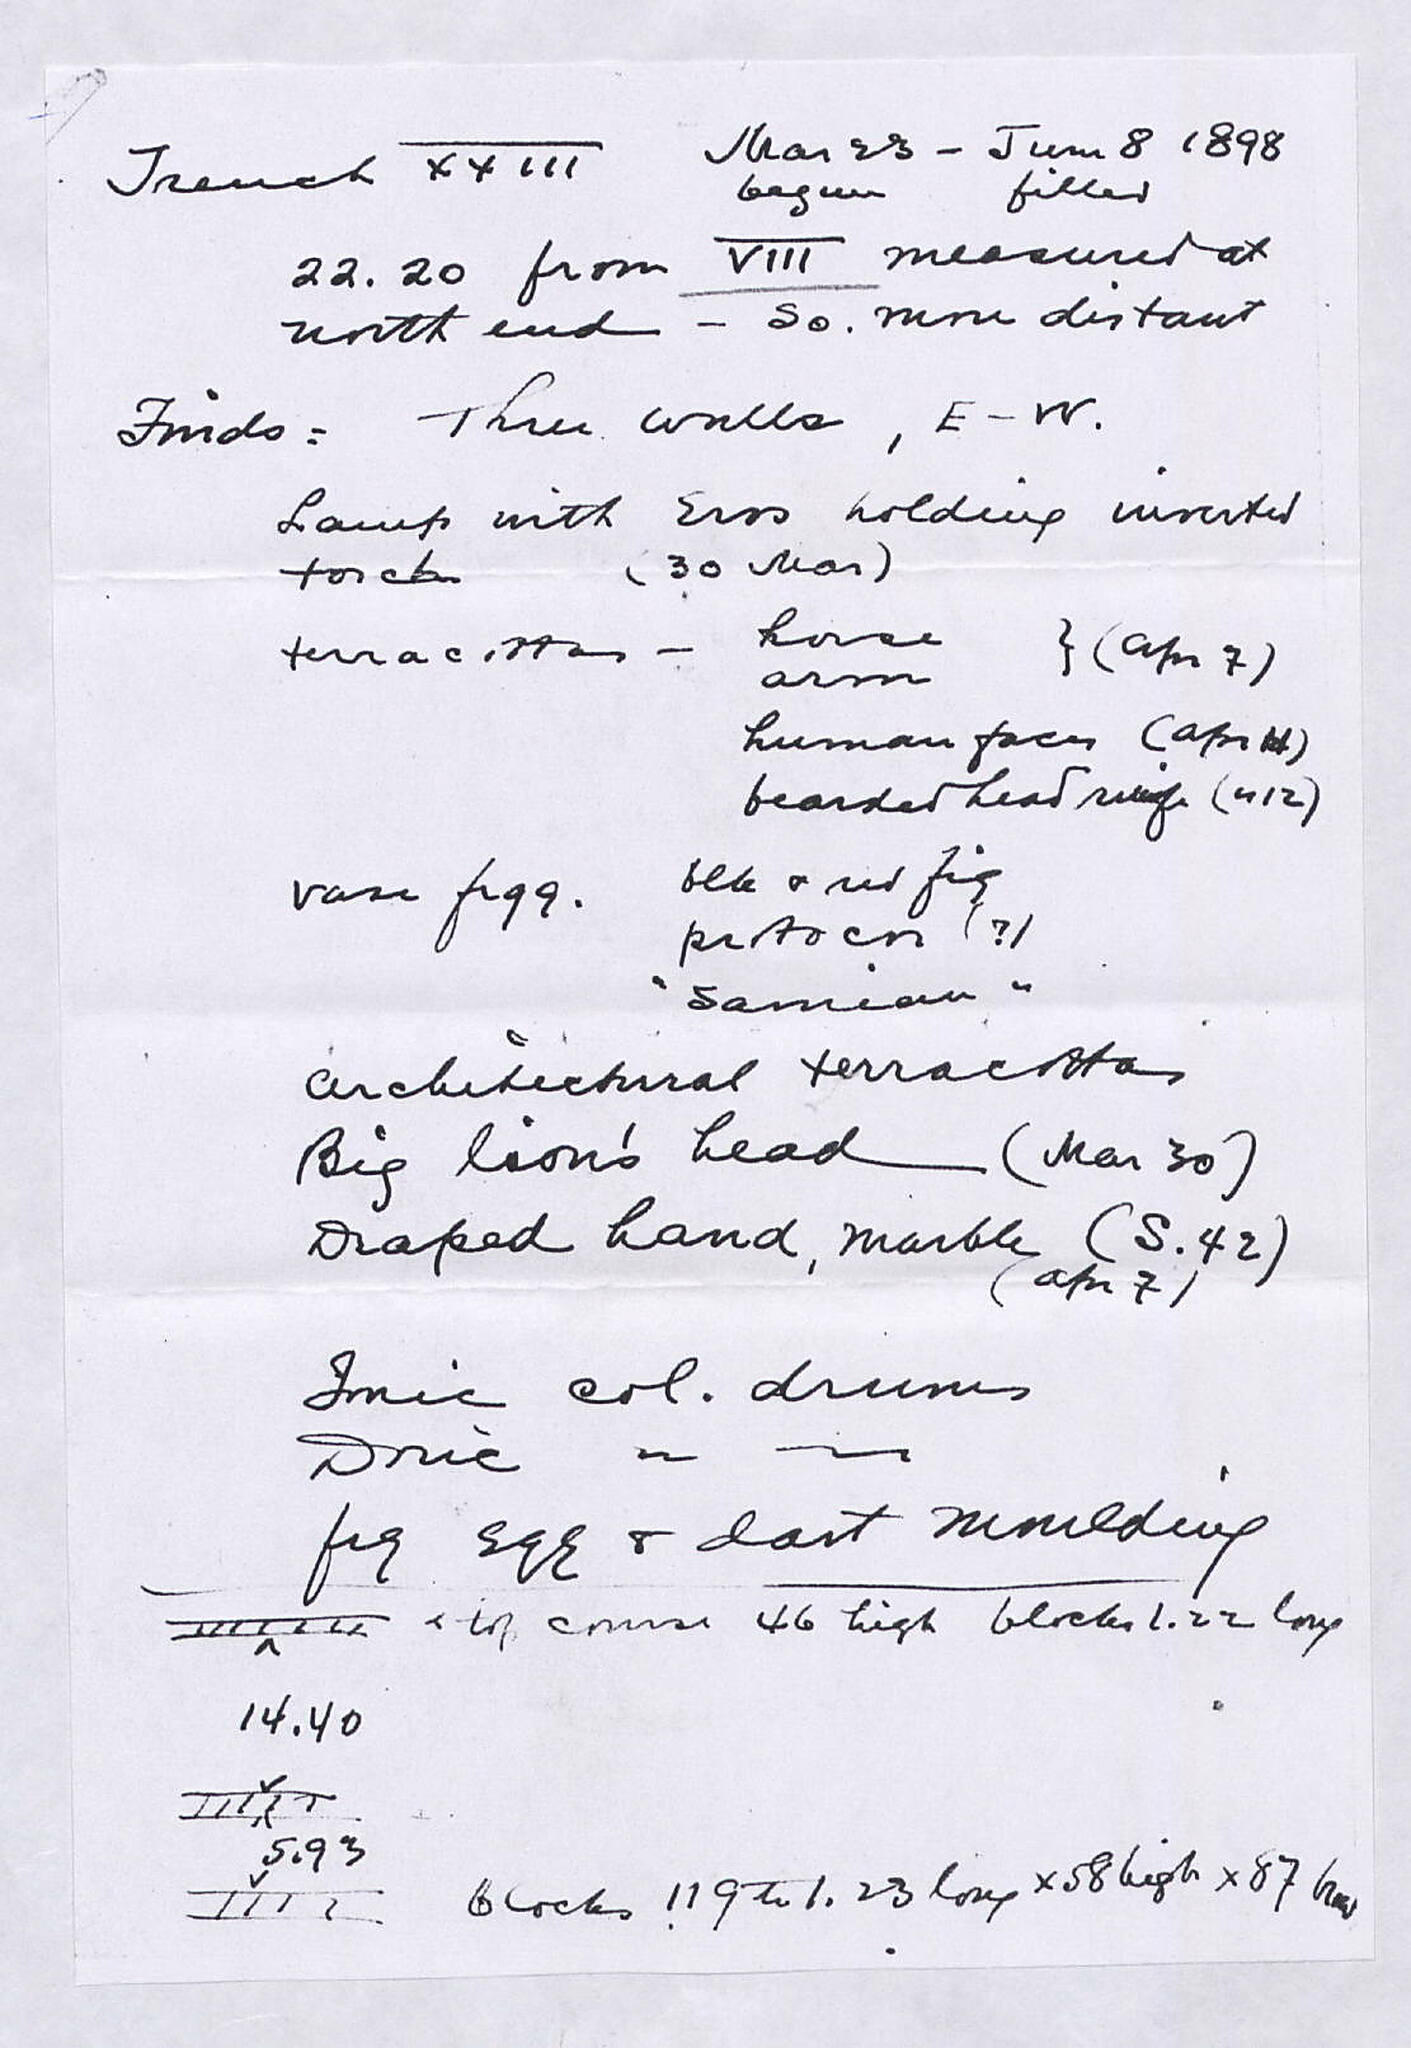 Trench XXIII Mar 23 - June 8 1898
begun filled
22.20 from VIII measured at
north end - So. more distant
Finds: Three walls, E-W.
Lamp with Eros holding inverted
torch (30 Mar)
terracottas - horse } (Apr 7)
arm
human faces (Apr 11)
bearded head (" 12)
vase frgg. blk & red fig
protocor (?)
"Samian"
Architectural terracottas
Big lion's head (Mar 30)
Draped hand, marble (S. 42)
(Apr 7)
Ionic col. drums
Doric " "
frg egg & dart moulding
top course 46 high blocks 1.22 long
14.40
5.93
blocks 1.19 to 1.23 long x 58 high x 87